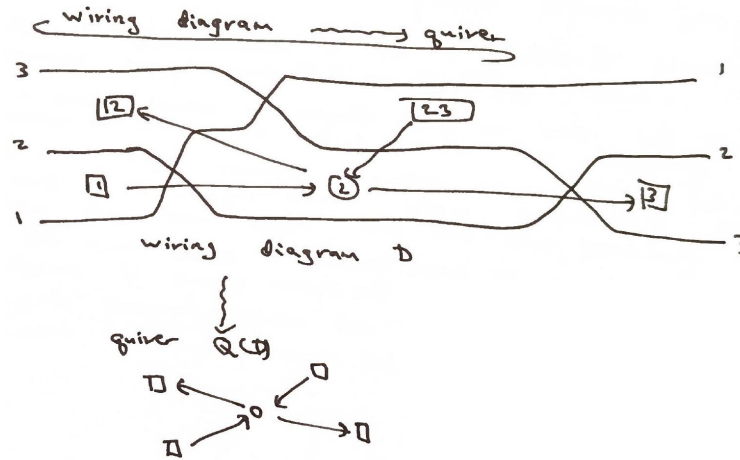 wiring diagram → quiver
3 1
12 23
2 2
1 2 3
1 3
wiring diagram D
quiver Q(D)